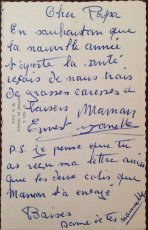 Cher Papa
En souhaitant que
la nouvelle année
t'apporte la santé
reçois de nous trois
de grosses caresses et
baisers Maman
Ernest
P.S. Je pense que tu
as reçu ma lettre ainsi
que les deux colis que
Maman t'a envoyé
Baises
Donne de tes nouvelles